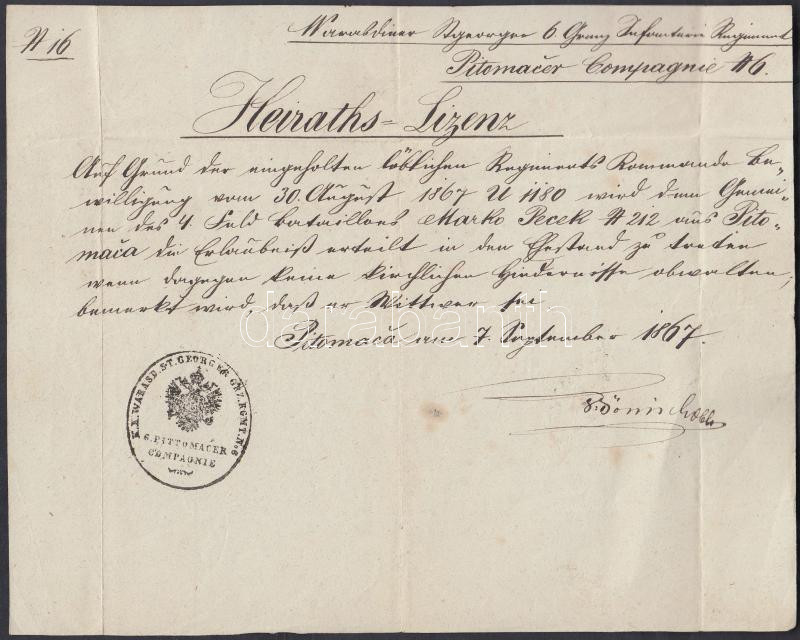 N 16
Warasdiner St georger 6. Grenz Infanterie Regiment
Pitomačer Compagnie N 6.
Heiraths-Lizenz
Auf Grund der eingeholten löblichen Regiments Kommando Be-
willigung vom 30. August 1867 N 1180 wird dem Gemei-
nen des 4. Feld Bataillons Marko Pecek N 212 aus Pito-
mača die Erlaubniß erteilt in den Ehestand zu treten
wenn dagegen keine kirchlichen Hindernisse obwalten,
bemerkt wird, daß er Wittwer sei
Pitomača am 7. September 1867.
K.K. WARASD. ST. GEORGER GRZ. RGMT. No 6
6. PITTOMAČER
COMPAGNIE
darabanth